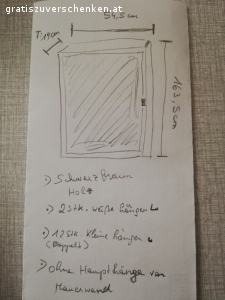 gratiszuverschenken.at
54,5cm
T: 19cm
163,5cm
·) Schwarzbraun
Holz
·) 2 Stk. weiße hängen
·) 12 Stk. kleine hängen
(Doppelt)
·) ohne Haupthänge von
Mauerwand